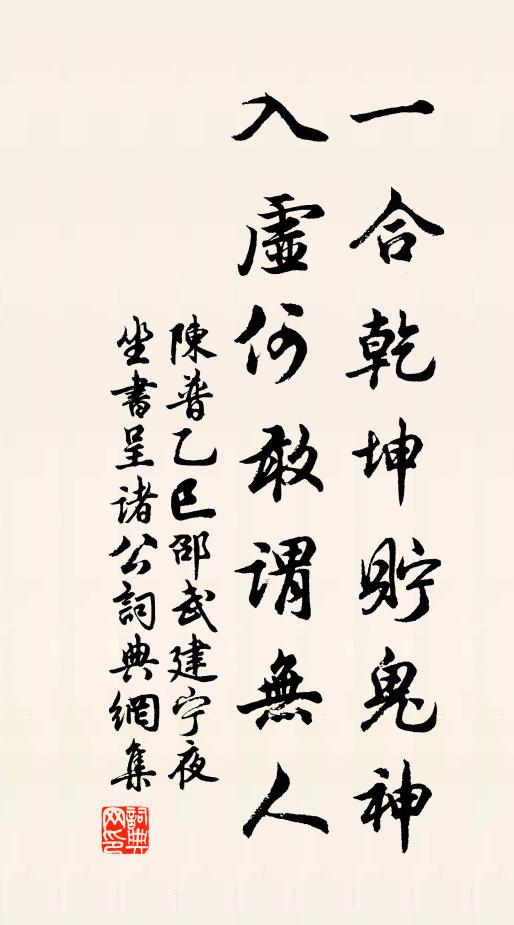 一合乾坤貯鬼神
入虛何敢謂無人
陳普乙巳邵武建宁夜
坐書呈诸公詞典網集
詞典网印